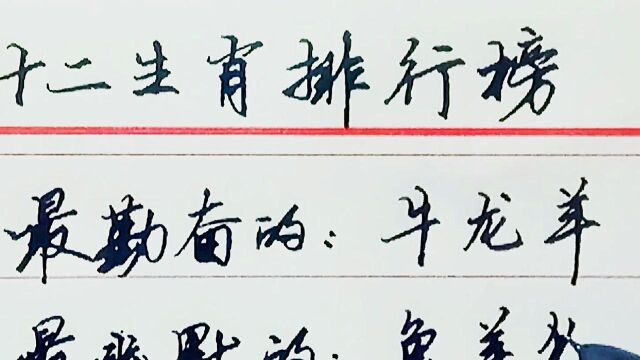 十二生肖排行榜
最勤奋的：牛龙羊
最幽默的：兔羊